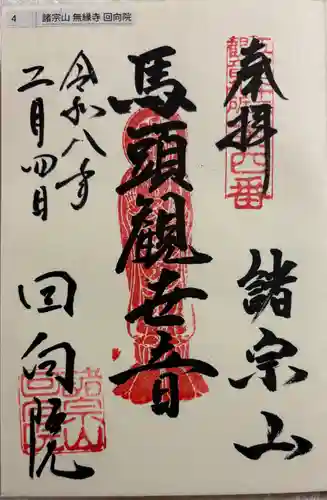 4 諸宗山 無縁寺 回向院
奉拝
諸宗山
馬頭観世音
令和八年
二月四日
回向院
四番
諸宗山